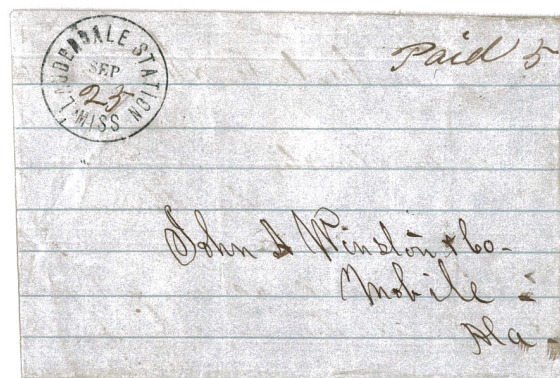 LAUDERDALE STATION MISS
SEP
25
Paid 5
John A Winston & Co-
Mobile -
Ala -